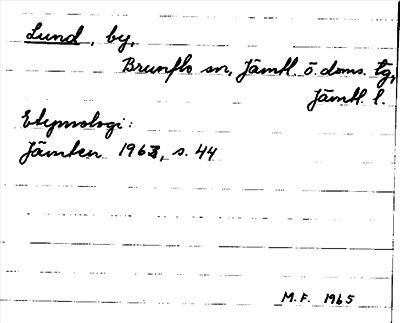 Lund, by,
Brunflo sn, Jämtl. ö. doms. tg,
Jämtl. l.
Etymologi:
Jämten 1963, s. 44
M.F. 1965